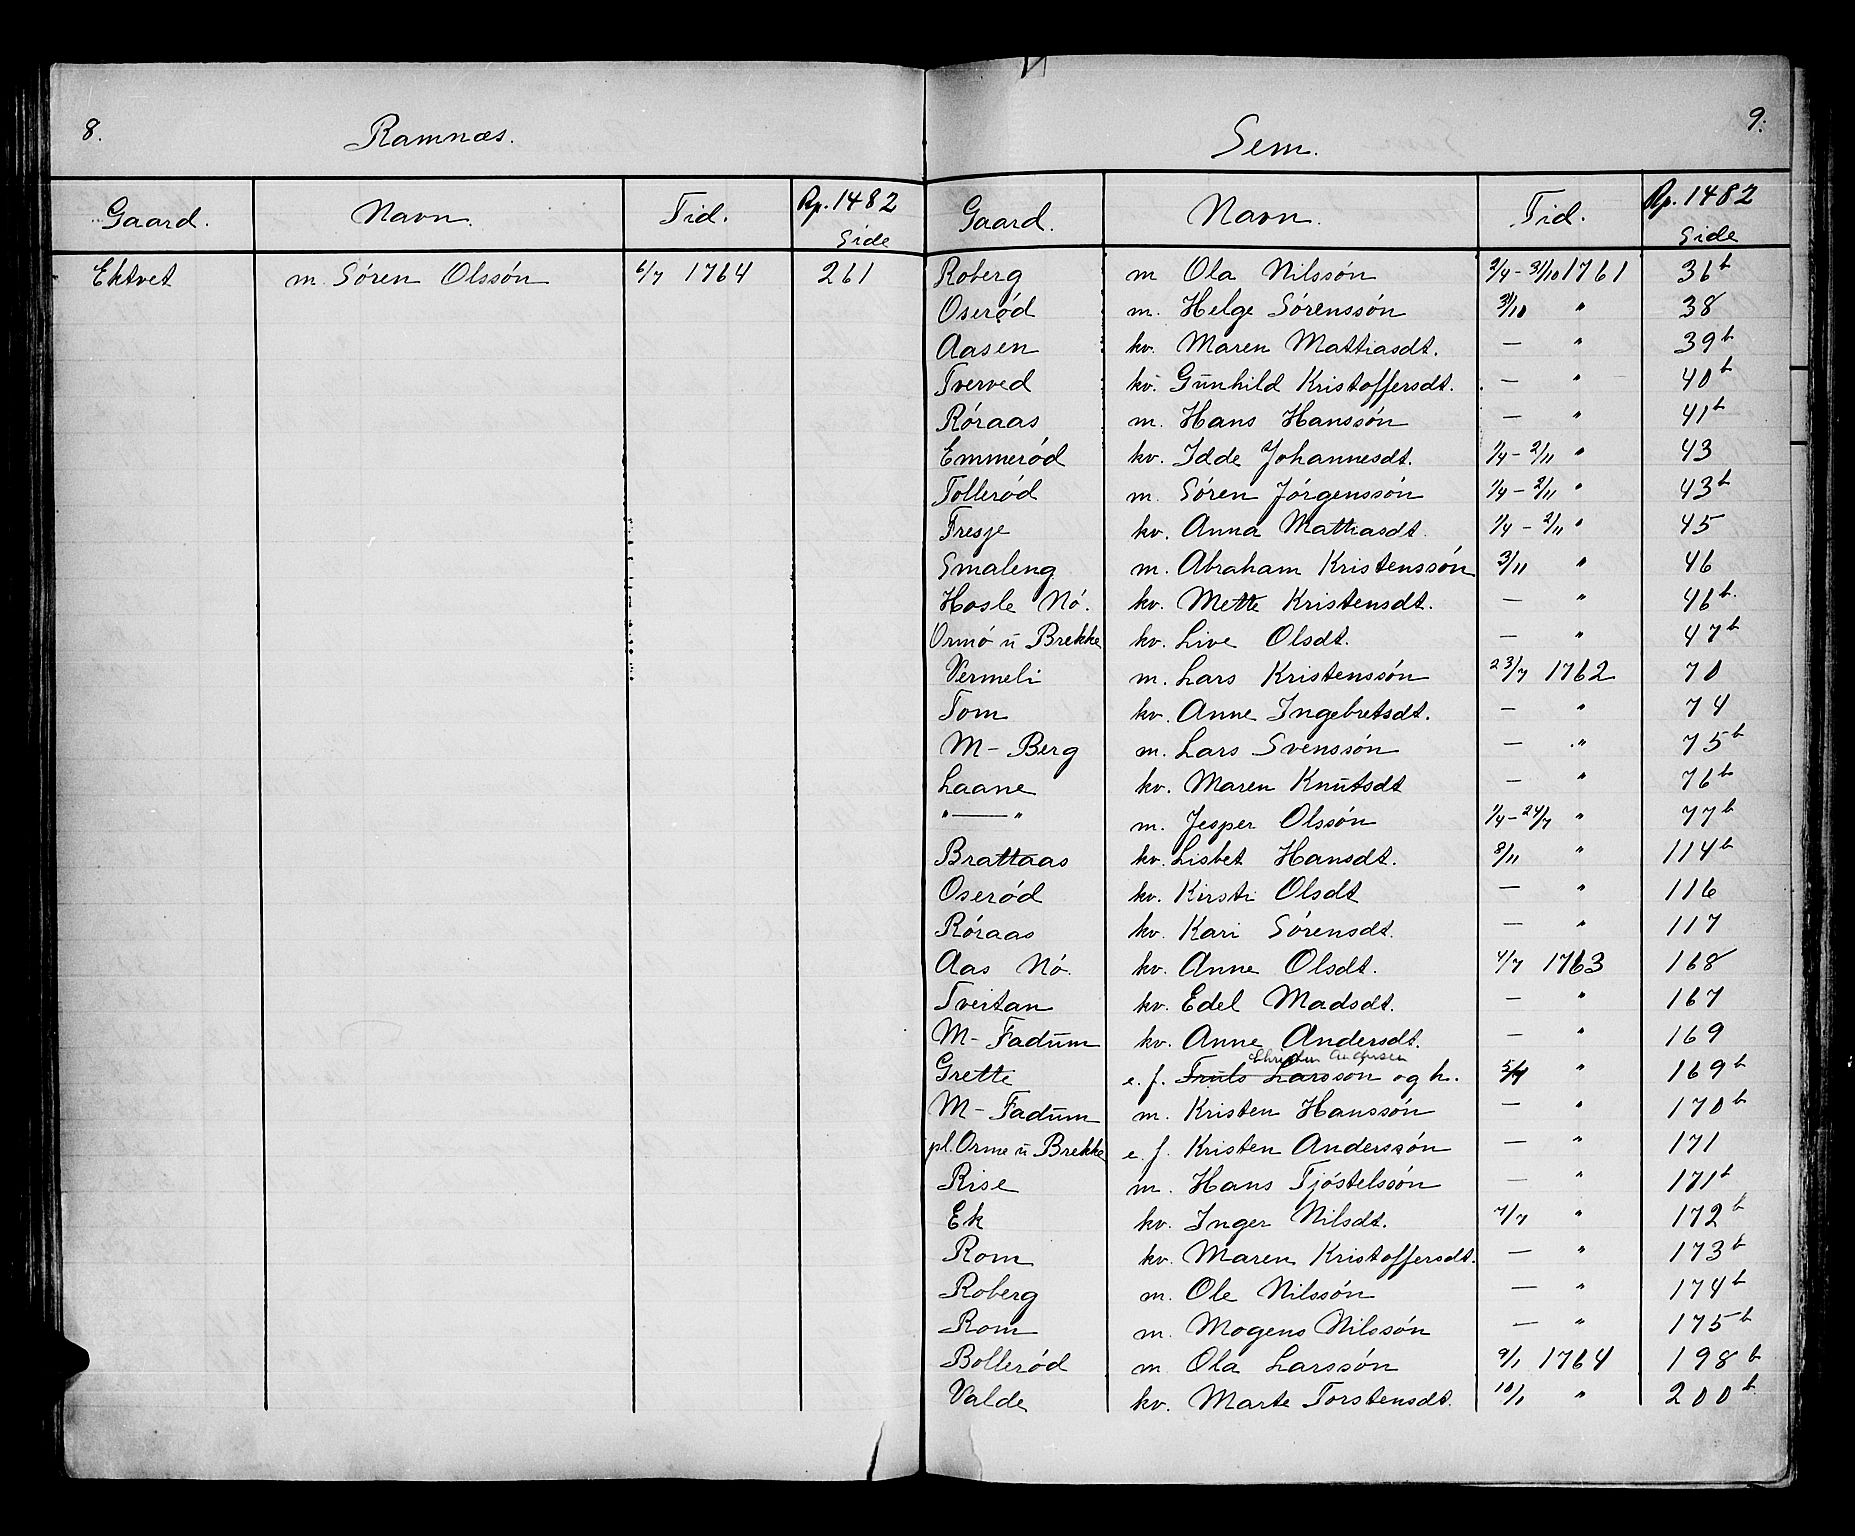 8.
Ramnæs.
Gaard. Navn. Tid. Rp. 1482 Side
Ektvet m. Sören Olssön 6/7 1764 261
9.
Sem.
Gaard. Navn. Tid. Rp. 1482 Side
Roberg m Ola Nilssön 2/4 - 31/10 1761 36b
Oseröd m. Helge Sörenssön 31/10 " 38
Aasen kv. Maren Mattiasdt. — " 39b
Tverved kv. Gunhild Kristoffersdt. — " 40b
Röraas m. Hans Hanssön — " 41b
Emmeröd kv. Idde Johannesdt. 1/4 - 2/11 " 43
Tolleröd m. Sören Jörgenssön 1/4 - 2/11 " 43b
Fresje kv. Anna Mattiasdt. 1/4 - 2/11 " 45
Smaleng m. Abraham Kristenssön 3/11 " 46
Hasle Nö. kv. Mette Kristensdt. — " 46b
Ormö u Brekke kv. Live Olsdt. — " 47b
Vermeli m. Lars Kristenssön 23/7 1762 70
Tom kv. Anne Ingebretsdt. — " 74
M- Berg m. Lars Svenssön — " 75b
Laane kv. Maren Knutsdt — " 76b
" — " m. Jesper Olssön 1/4 - 24/7 " 77b
Brattaas kv. Lisbet Hansdt. 8/11 " 114b
Oseröd kv. Kirsti Olsdt — " 116
Röraas kv. Kari Sörensdt. — " 117
Aas Nö. kv. Anne Olsdt. 4/7 1763 168
Tveitan kv. Edel Madsdt. — " 167
M- Fadum kv. Anne Andersdt. — " 169
Christen Andersen
Grette e. f. Truls Larssön og h. 5/7 " 169b
M- Fadum m. Kristen Hanssön — " 170b
pl. Orme u Brekke e. f. Kristen Anderssön — " 171
Rise m. Hans Tjöstelssön — " 171b
Ek kv. Inger Nilsdt. 7/7 " 172b
Rom kv. Maren Kristoffersdt. — " 173b
Roberg m. Ole Nilssön — " 174b
Rom m. Mogens Nilssön — " 175b
Bolleröd m. Ola Larssön 9/1 1764 198b
Valde kv. Marte Torstensdt. 10/1 " 200b